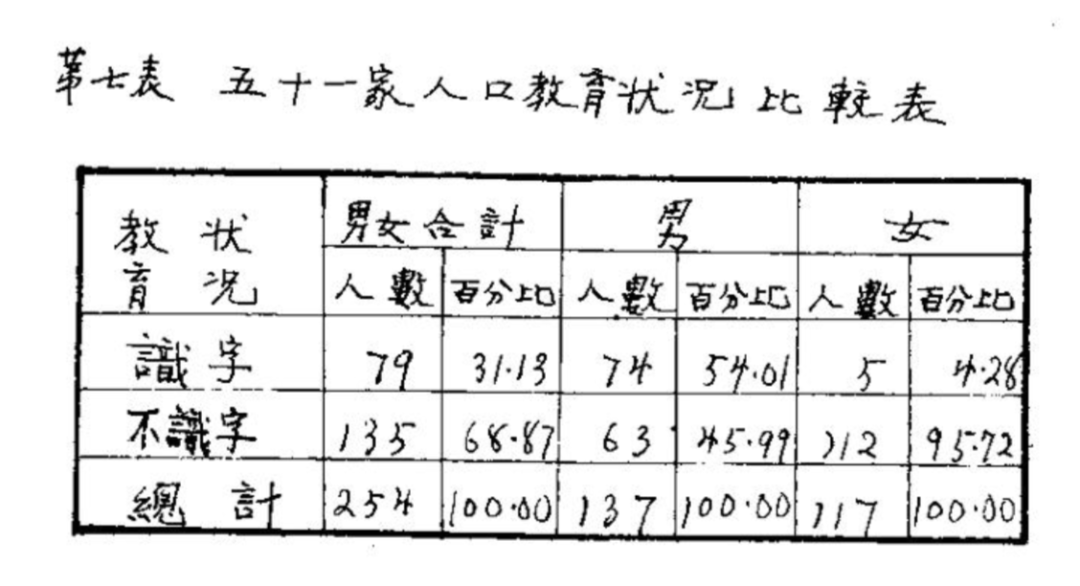 第七表 五十一家人口教育狀況比較表
教育狀況 男女合計 男 女
人數 百分比 人數 百分比 人數 百分比
識字 79 31.13 74 54.01 5 4.28
不識字 135 68.87 63 45.99 112 95.72
總計 254 100.00 137 100.00 117 100.00